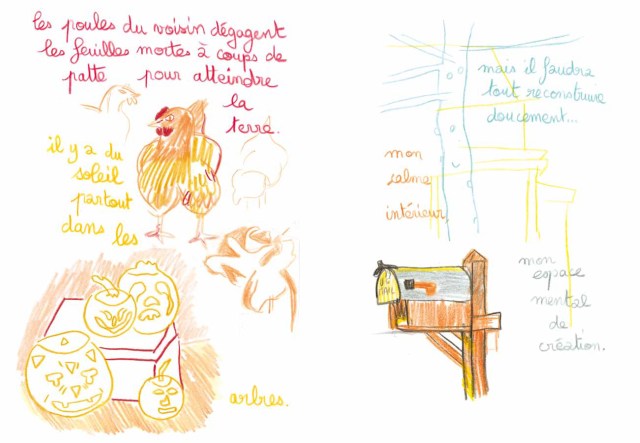 les poules du voisin dégagent
les feuilles mortes à coups de
patte pour atteindre
la
terre.
il y a du
soleil
partout
dans les
arbres.
mais il faudra
tout reconstruire
doucement...
mon
calme
intérieur,
mon
espace
mental
de
création.
MAIL